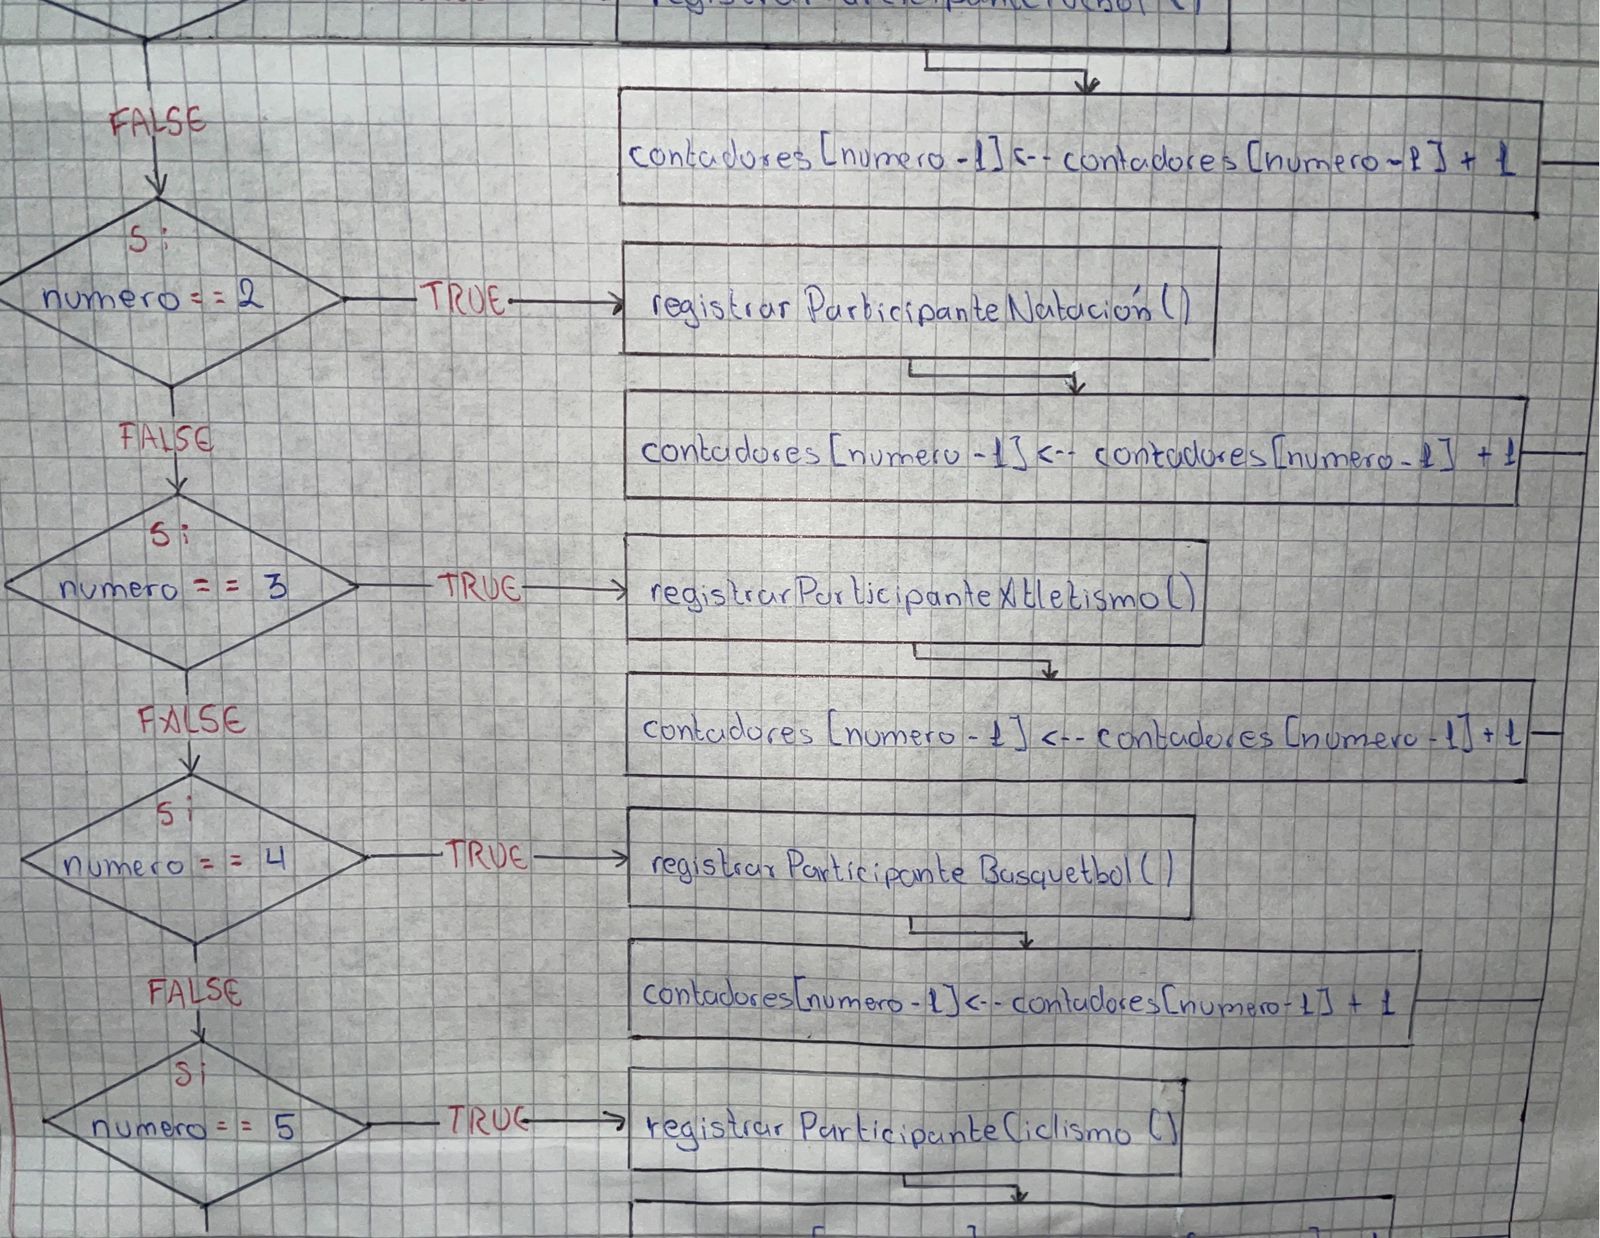 FALSE
contadores [numero - 1] <-- contadores [numero - 1] + 1
Si
numero == 2
TRUE
registrar ParticipanteNatación ()
FALSE
contadores [numero - 1] <-- contadores [numero - 1] + 1
Si
numero == 3
TRUE
registrarParticipanteAtletismo ()
FALSE
contadores [numero - 1] <-- contadores [numero - 1] + 1
Si
numero == 4
TRUE
registrarParticipante Basquetbol ()
FALSE
contadores [numero - 1] <-- contadores [numero - 1] + 1
Si
numero == 5
TRUE
registrar ParticipanteCiclismo ()